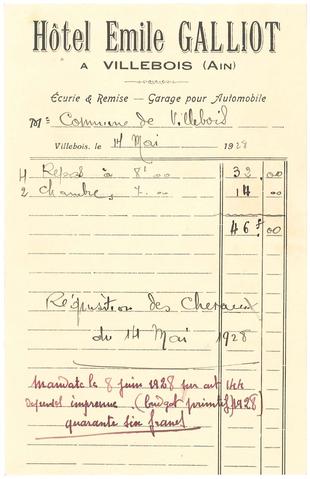 Hôtel Emile GALLIOT
A VILLEBOIS (AIN)
Écurie & Remise — Garage pour Automobile
M Commune de Villebois
Villebois, le 14 Mai 1928
4 Repas à 8'00 32,00
2 chambres, 7.00 14,00
46 f,00
Réquisition des Chevaux
du 14 Mai 1928
Mandaté le 8 juin 1928 par art 144
imprevue (budget primitif) 1928
quarante six francs